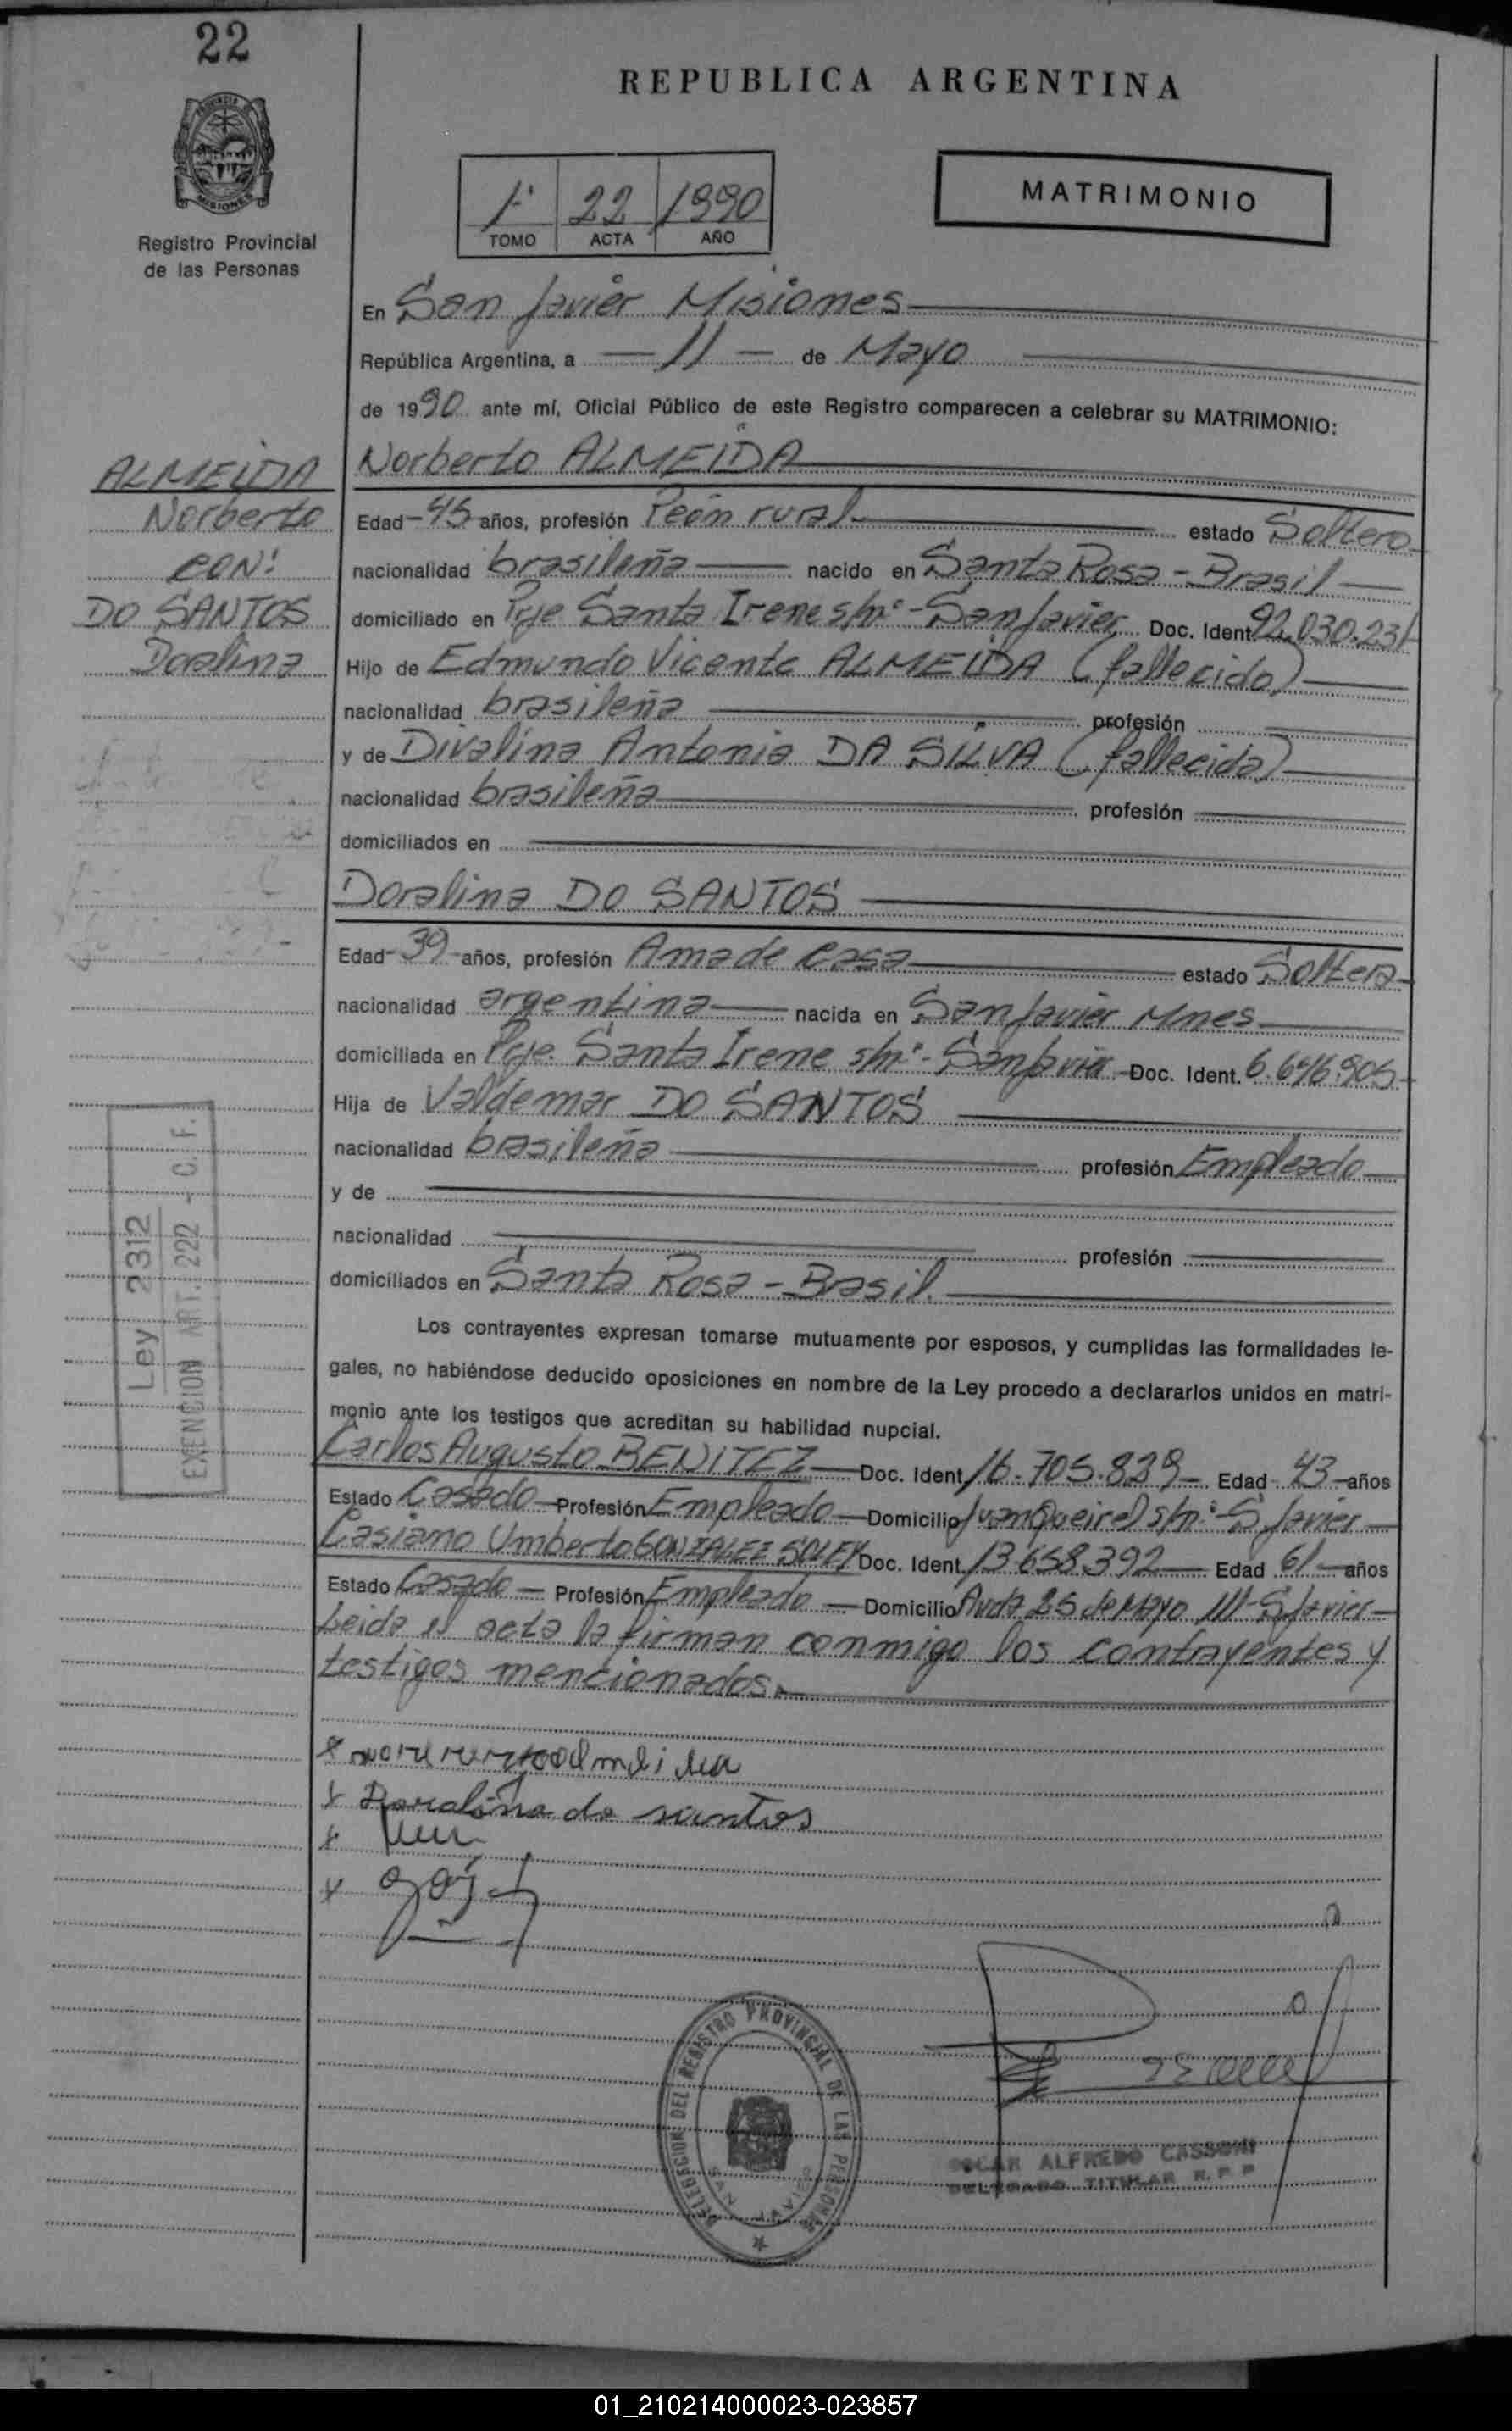 22
REPUBLICA ARGENTINA
PROVINCIA DE
MISIONES
Registro Provincial
de las Personas
MATRIMONIO
1º 22 1990
TOMO ACTA AÑO
En San Javier Misiones
República Argentina, a - 11 - de Mayo
de 1990 ante mí, Oficial Público de este Registro comparecen a celebrar su MATRIMONIO:
ALMEIDA
Norberto
CON:
DO SANTOS
Doralina
Norberto ALMEIDA
Edad - 45 - años, profesión Peón rural estado Soltero
nacionalidad brasileña nacido en Santa Rosa - Brasil
domiciliado en Pje Santa Irene s/nº - San Javier Doc. Ident. 92.030.231
Hijo de Edmundo Vicente ALMEIDA (fallecido)
nacionalidad brasileña profesión
y de Divalina Antonia DA SILVA (fallecida)
nacionalidad brasileña profesión
domiciliados en
Doralina DO SANTOS
Edad - 39 - años, profesión Ama de casa estado Soltera
nacionalidad argentina nacida en San Javier Mnes
domiciliada en Pje. Santa Irene s/nº - San Javier Doc. Ident. 6.646.905
Hija de Valdemar DO SANTOS
nacionalidad brasileña profesión Empleado
y de
nacionalidad profesión
domiciliados en Santa Rosa - Brasil.
Ley 2312
EXENCION ART. 222 - C. F.
Los contrayentes expresan tomarse mutuamente por esposos, y cumplidas las formalidades le-
gales, no habiéndose deducido oposiciones en nombre de la Ley procedo a declararlos unidos en matri-
monio ante los testigos que acreditan su habilidad nupcial.
Carlos Augusto BENITEZ Doc. Ident. 16.705.839 Edad 43 años
Estado Casado Profesión Empleado Domicilio Juan Queirel s/nº - S Javier
Casiano Umberto GONZALEZ SOLEY Doc. Ident. 13658392 Edad 61 años
Estado Casado Profesión Empleado Domicilio Avda 25 de Mayo 111 - S Javier
Leida el acta la firman conmigo los contrayentes y
testigos mencionados.
Doralina do santos
DELEGACION DEL REGISTRO PROVINCIAL DE LAS PERSONAS
SAN JAVIER
OSCAR ALFREDO CASSONI
DELEGADO TITULAR R. P. P
01_210214000023-023857